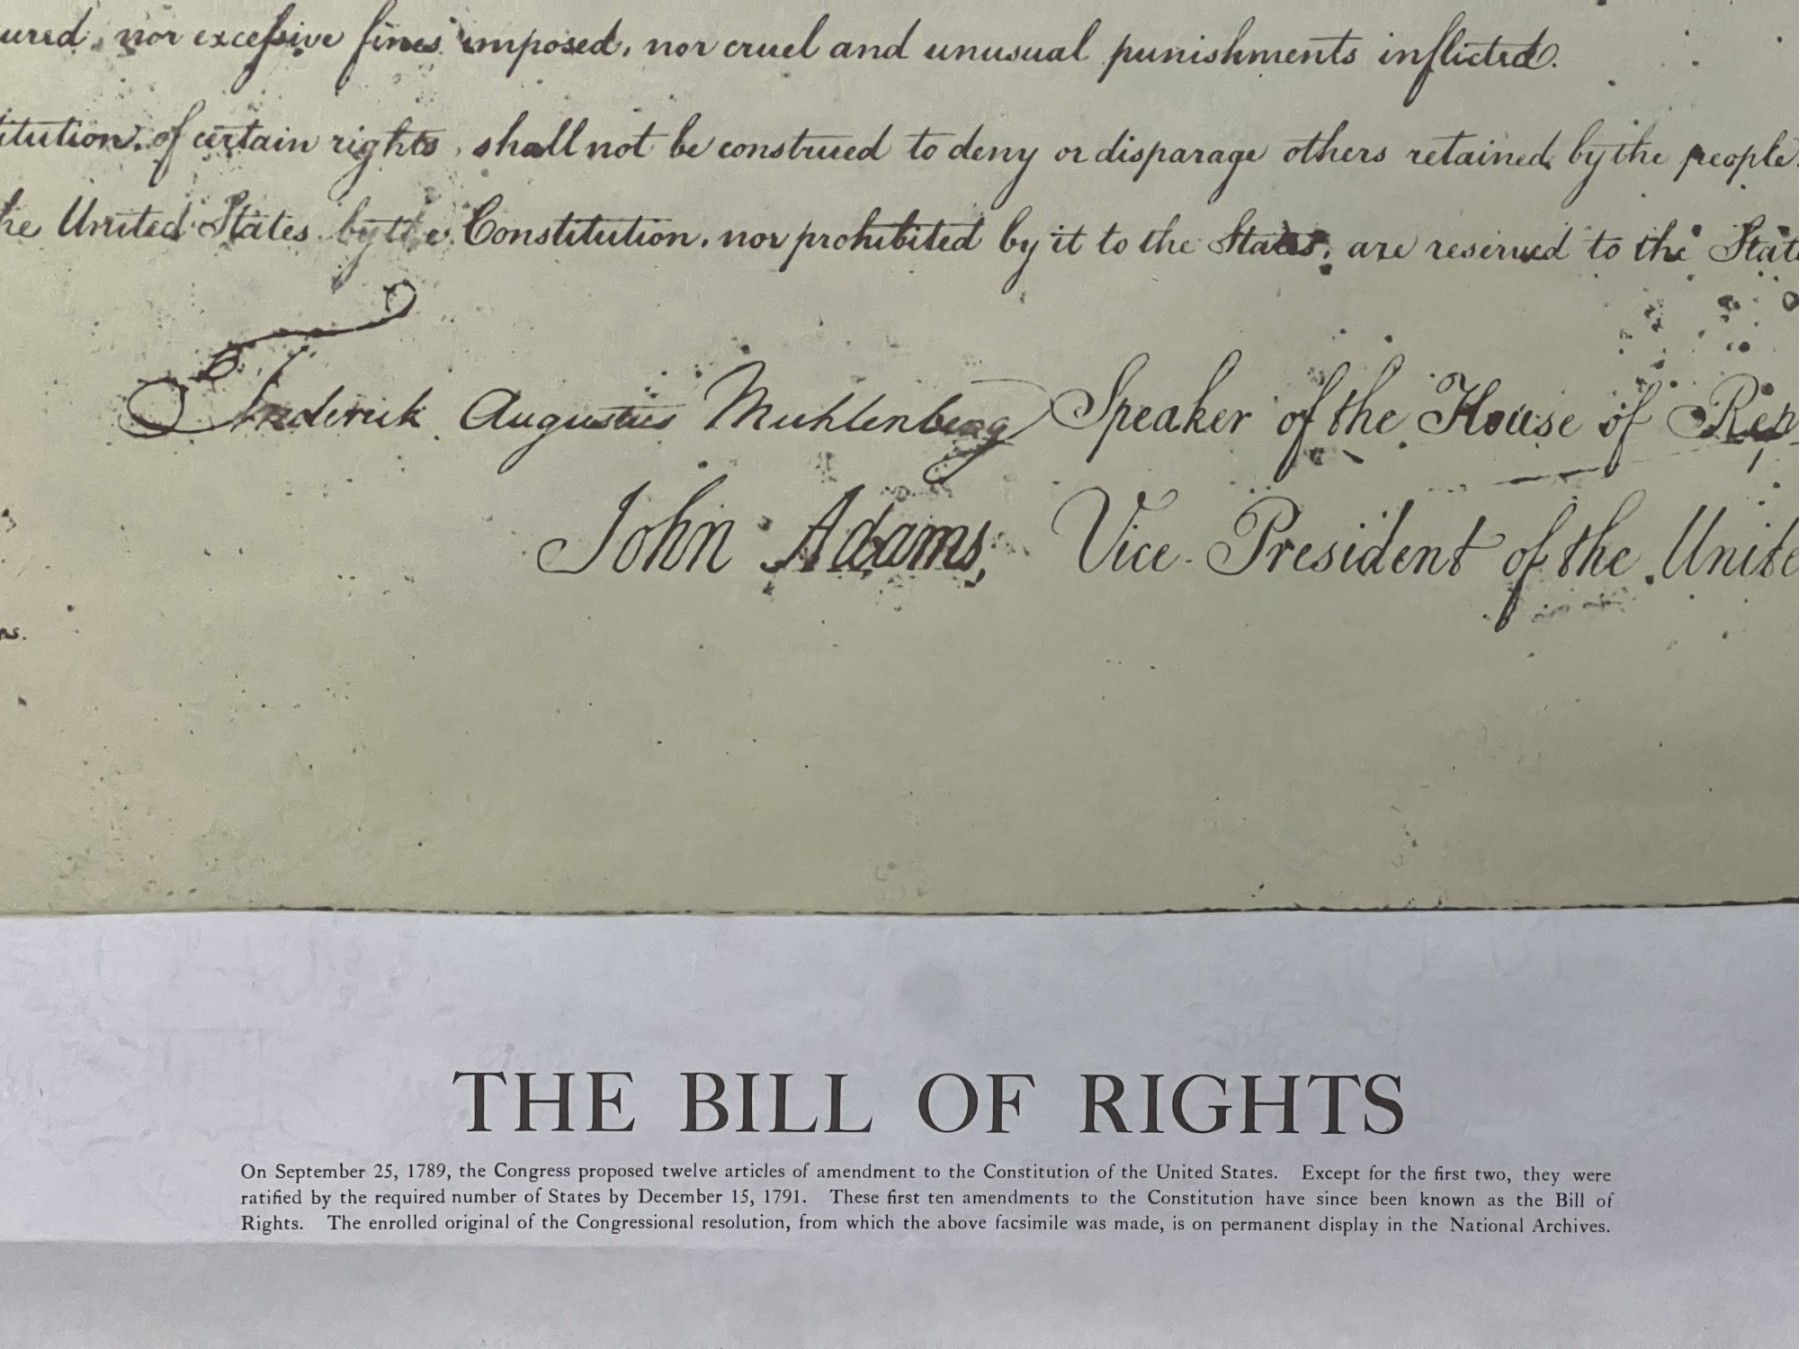 ured, nor excessive fines imposed, nor cruel and unusual punishments inflicted.
titution, of certain rights, shall not be construed to deny or disparage others retained by the people.
he United States by the Constitution, nor prohibited by it to the States, are reserved to the Stat
Frederick Augustus Muhlenberg Speaker of the House of Rep
John Adams, Vice-President of the Unite
ns.
THE BILL OF RIGHTS
On September 25, 1789, the Congress proposed twelve articles of amendment to the Constitution of the United States. Except for the first two, they were
ratified by the required number of States by December 15, 1791. These first ten amendments to the Constitution have since been known as the Bill of
Rights. The enrolled original of the Congressional resolution, from which the above facsimile was made, is on permanent display in the National Archives.